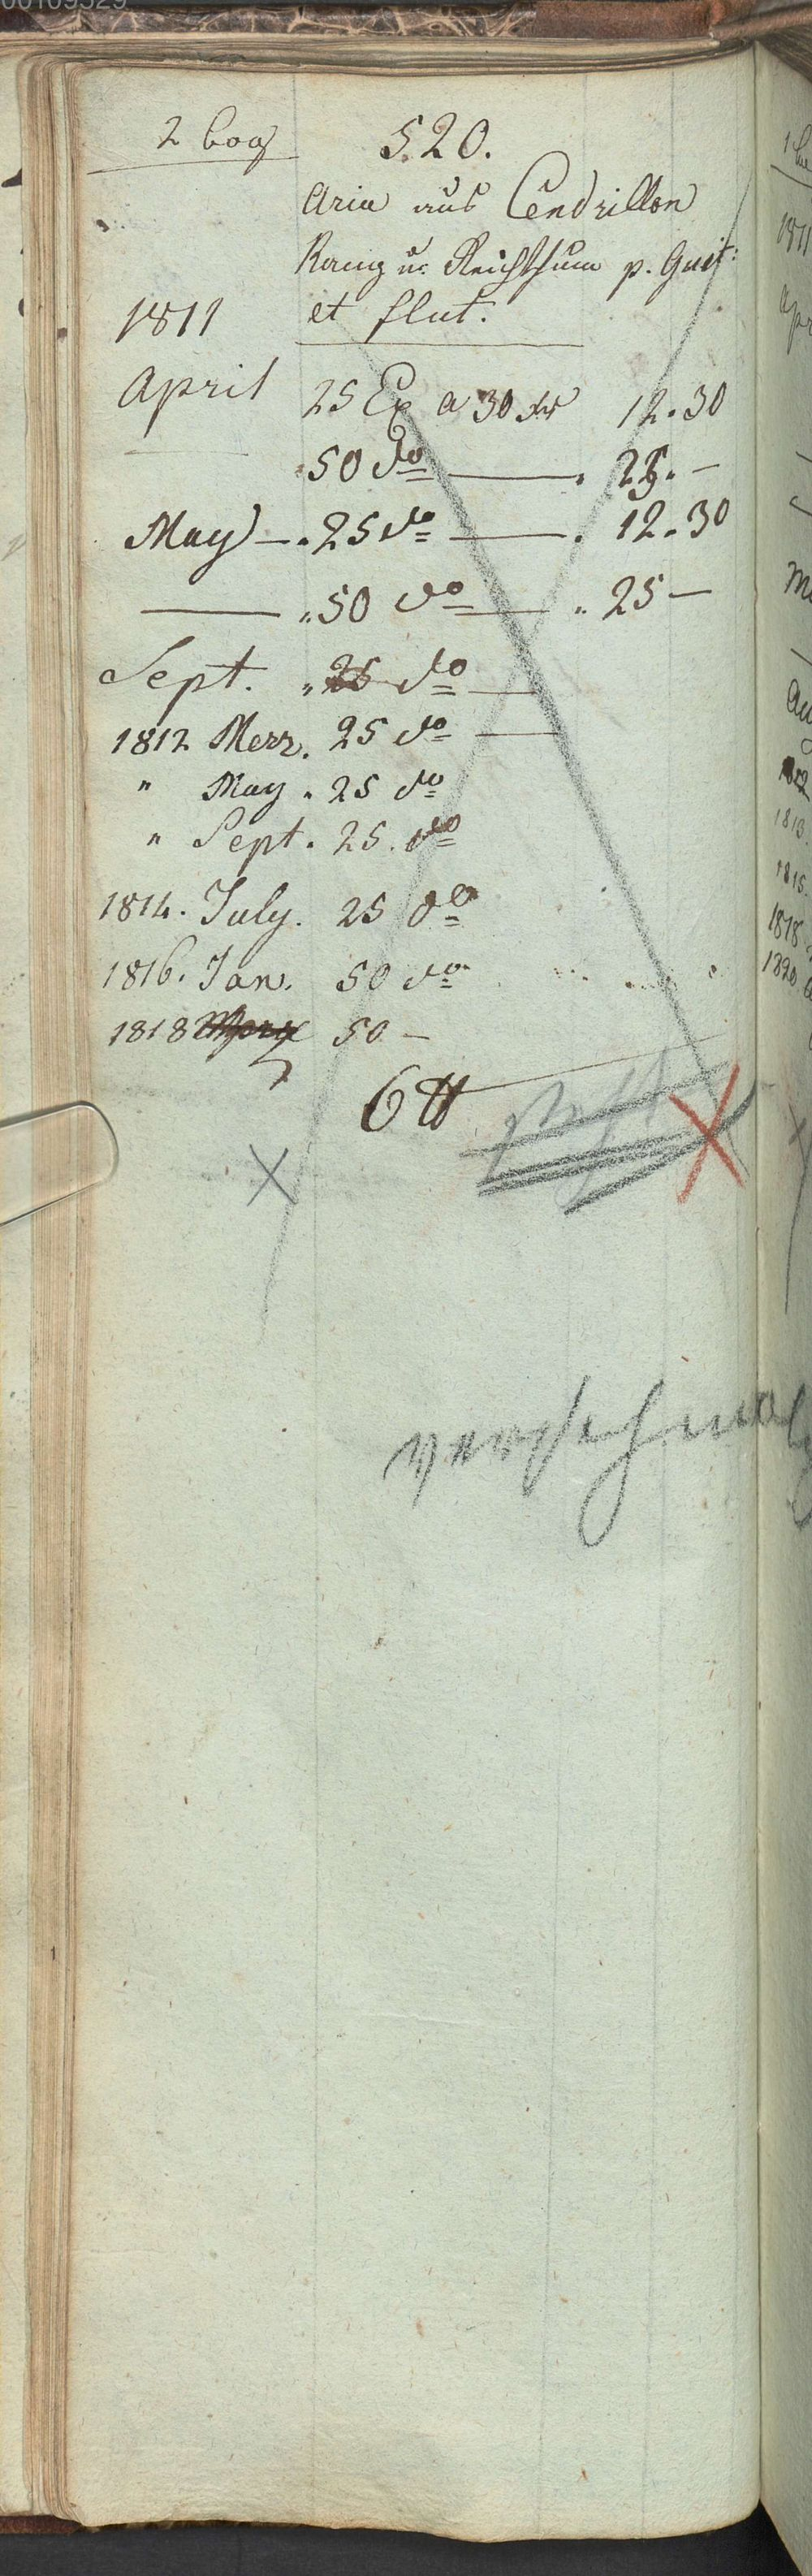 00109529
2 bog
520.
Aria aus Cendrillon
Rang u. Reichthum p. Guit:
1811 et flut.
April 25 Ex a 30 xr 12.30
50 do 25. —
May — . 25 do — . 12.30
— " 50 do — " 25 —
Sept. " 25 do —
1812 Merz. 25 do —
" May " 25 do
" Sept. 25. do
1814. July. 25 do
1816. Jan. 50 do
1818 50 —
6 tt
X X